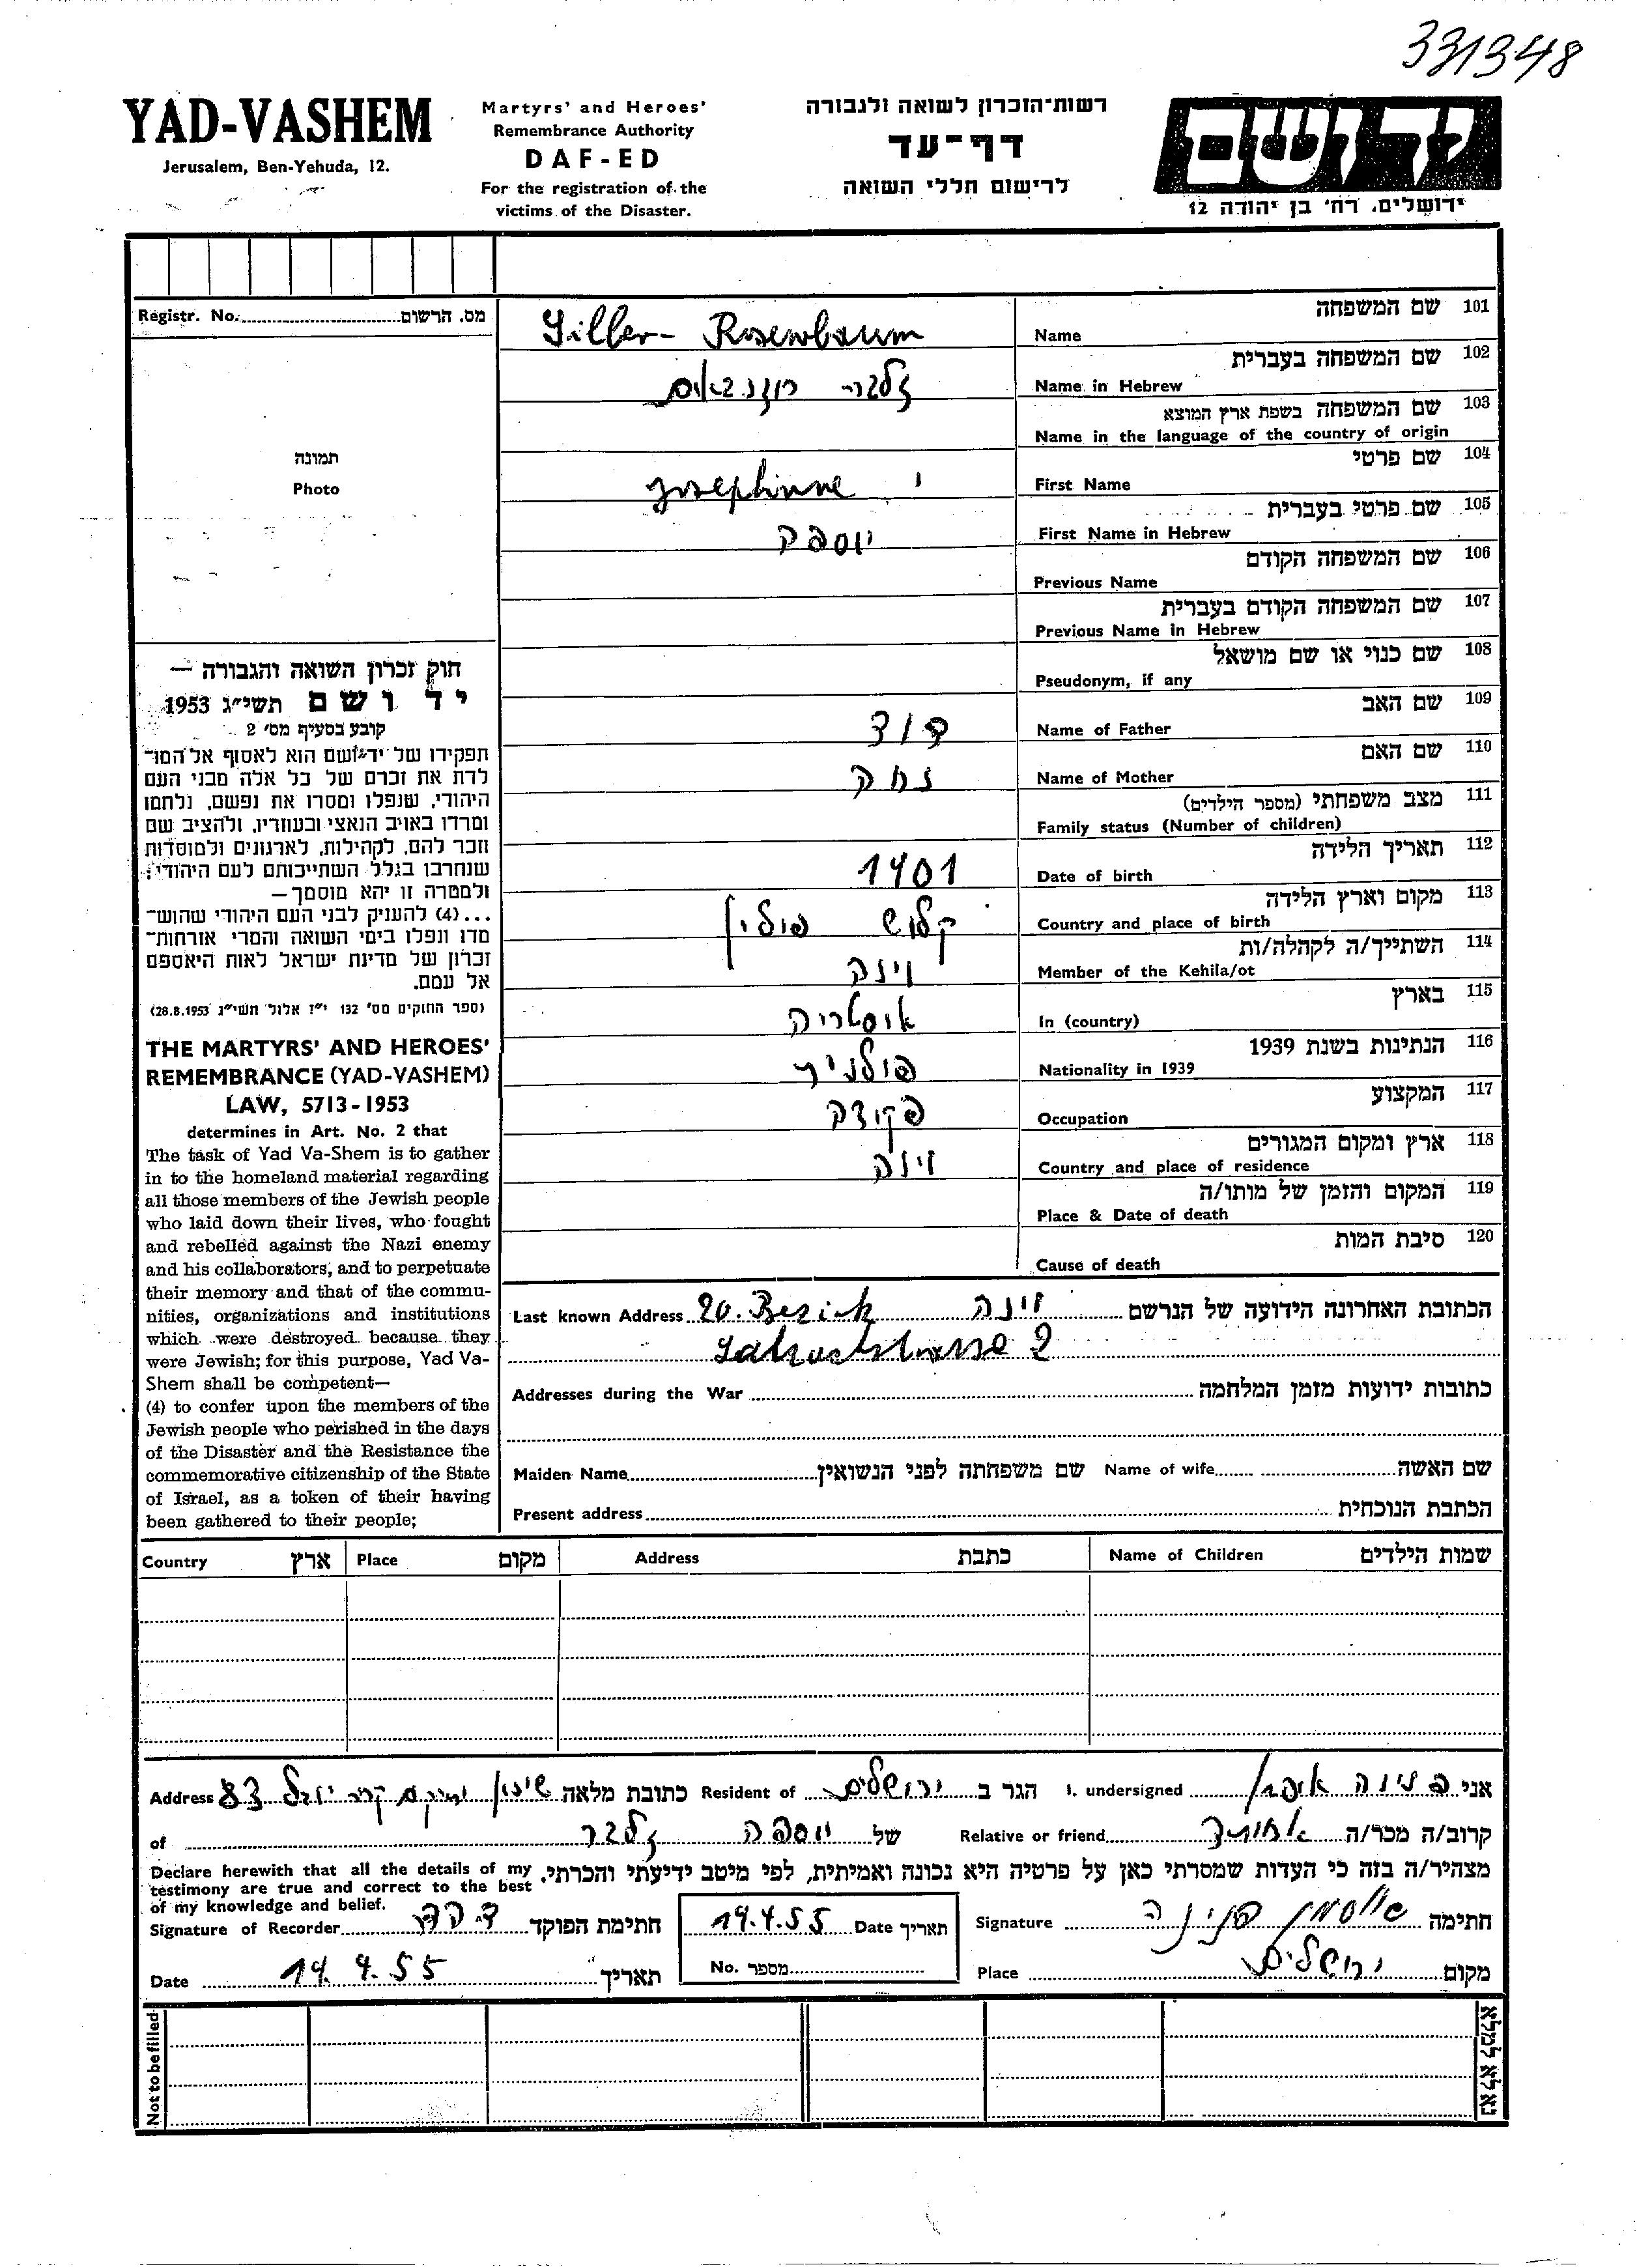 331348
YAD-VASHEM
Jerusalem, Ben-Yehuda, 12.
Martyrs' and Heroes'
Remembrance Authority
DAF-ED
For the registration of the
victims of the Disaster.
רשות־הזכרון לשואה ולגבורה
דף־עד
לרישום חללי השואה
יד ושם
ירושלים, רח' בן יהודה 12
Registr. No. מס. הרשום
תמונה
Photo
חוק זכרון השואה והגבורה —
יד ושם תשי״ג 1953
קובע בסעיף מס' 2
תפקידו של יד־ושם הוא לאסוף אל המו־
לדת את זכרם של כל אלה מבני העם
היהודי, שנפלו ומסרו את נפשם, נלחמו
ומרדו באויב הנאצי ובעוזריו, ולהציב שם
וזכר להם, לקהילות, לארגונים ולמוסדות
שנחרבו בגלל השתייכותם לעם היהודי;
ולמטרה זו יהא מוסמך—
...(4) להעניק לבני העם היהודי שהוש־
מדו ונפלו בימי השואה והמרי אזרחות־
זכרון של מדינת ישראל לאות היאספם
אל עמם.
(ספר החוקים מס' 132 י״ז אלול תשי״ג 28.8.1953)
THE MARTYRS' AND HEROES'
REMEMBRANCE (YAD-VASHEM)
LAW, 5713-1953
determines in Art. No. 2 that
The task of Yad Va-Shem is to gather
in to the homeland material regarding
all those members of the Jewish people
who laid down their lives, who fought
and rebelled against the Nazi enemy
and his collaborators, and to perpetuate
their memory and that of the commu-
nities, organizations and institutions
which were destroyed because they
were Jewish; for this purpose, Yad Va-
Shem shall be competent—
(4) to confer upon the members of the
Jewish people who perished in the days
of the Disaster and the Resistance the
commemorative citizenship of the State
of Israel, as a token of their having
been gathered to their people;
101 שם המשפחה
Name Silber- Rosenbaum
102 שם המשפחה בעברית
Name in Hebrew זלבר- רוזנבאום
103 שם המשפחה בשפת ארץ המוצא
Name in the language of the country of origin
104 שם פרטי
First Name Josephinne
105 שם פרטי בעברית
First Name in Hebrew יוספה
106 שם המשפחה הקודם
Previous Name
107 שם המשפחה הקודם בעברית
Previous Name in Hebrew
108 שם כנוי או שם מושאל
Pseudonym, if any
109 שם האב
Name of Father דוד
110 שם האם
Name of Mother נחה
111 מצב משפחתי (מספר הילדים)
Family status (Number of children)
112 תאריך הלידה
Date of birth 1901
113 מקום וארץ הלידה
Country and place of birth קלוש פולין
114 השתייך/ה לקהלה/ות
Member of the Kehila/ot וינה
115 בארץ
In (country) אוסטריה
116 הנתינות בשנת 1939
Nationality in 1939
117 המקצוע
Occupation פקידה
118 ארץ ומקום המגורים
Country and place of residence וינה
119 המקום והזמן של מותו/ה
Place & Date of death
120 סיבת המות
Cause of death
Last known Address 20. Bezirk וינה הכתובת האחרונה הידועה של הנרשם
2
Addresses during the War כתובות ידועות מזמן המלחמה
Maiden Name שם משפחתה לפני הנשואין Name of wife שם האשה
Present address הכתבת הנוכחית
Country ארץ Place מקום Address כתבת Name of Children שמות הילדים
אני פנינה I. undersigned הגר ב ירושלים Resident of כתובת מלאה שיכון 83 Address
קרוב/ה מכר/ה אחותה Relative or friend של יוספה זלבר of
מצהיר/ה בזה כי העדות שמסרתי כאן על פרטיה היא נכונה ואמיתית, לפי מיטב ידיעתי והכרתי.
Declare herewith that all the details of my
testimony are true and correct to the best
of my knowledge and belief.
Signature of Recorder חתימת הפוקד
תאריך Date 19.4.55
Signature פנינה חתימה
Date 19.4.55 תאריך
No. מספר
Place ירושלים מקום
Not to be filled
נא לא למלא